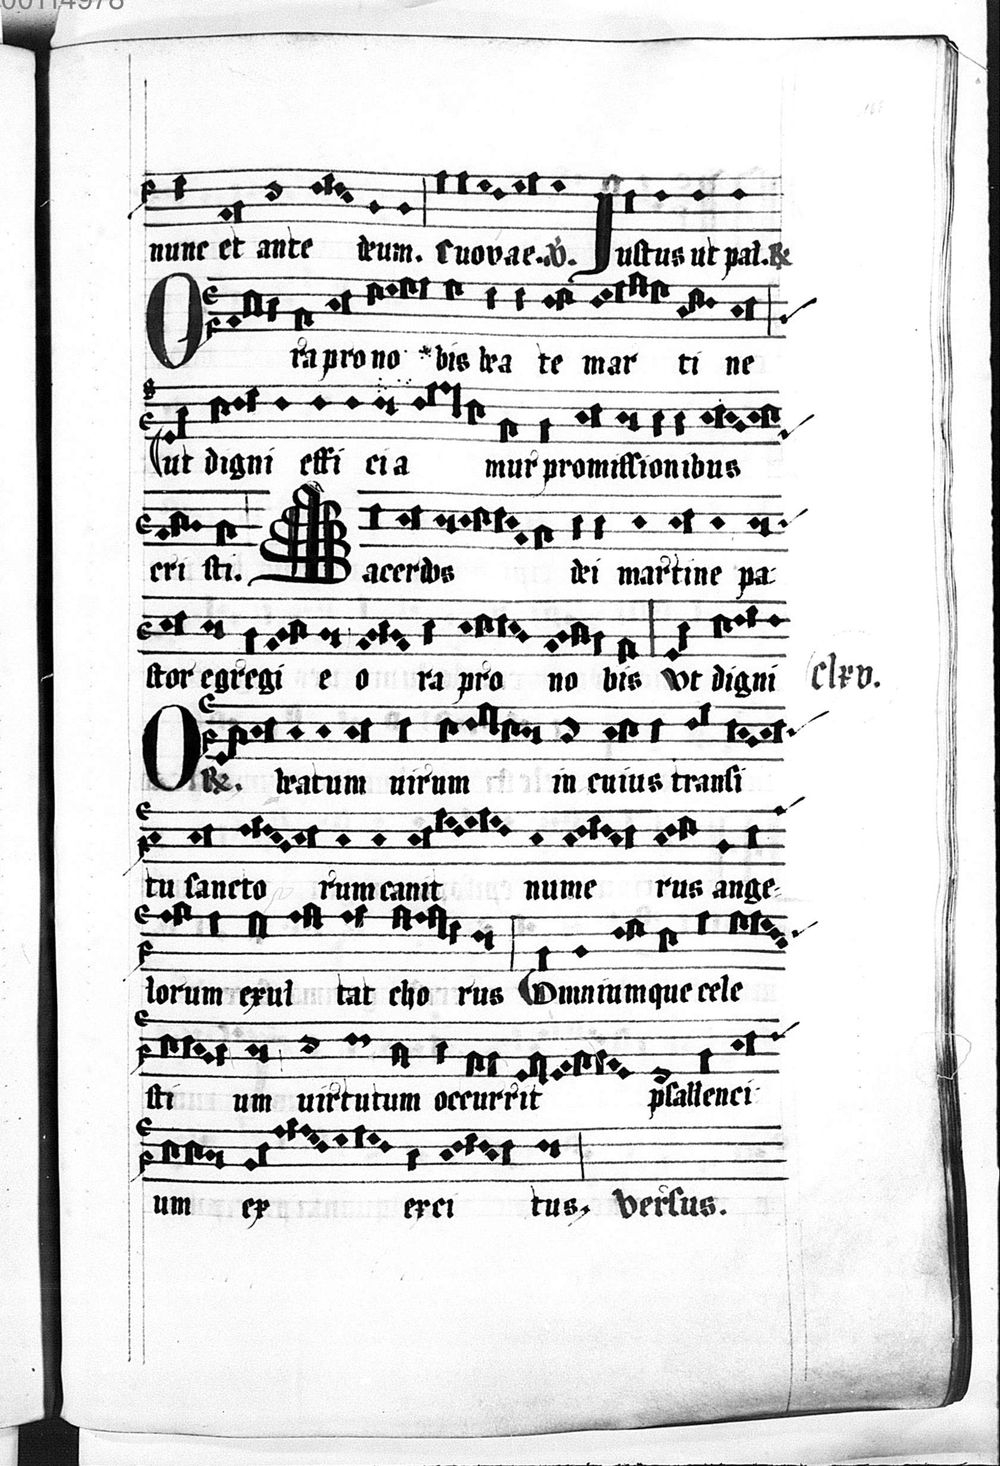 00114978
nunc et ante deum. Euovae. V. Justus ut pal. R
Ora pro no * bis bea te mar ti ne
ut digni effi cia mur promissionibus
cri sti. Sacerdos dei martine pa
stor egregi e o ra pro no bis Vt digni
clxv.
O R. beatum uirum in cuius transi
tu sancto rum canit nume rus ange
lorum exul tat cho rus Omniumque cele
sti um uirtutum occurrit psallenci
um ex erci tus, Versus.